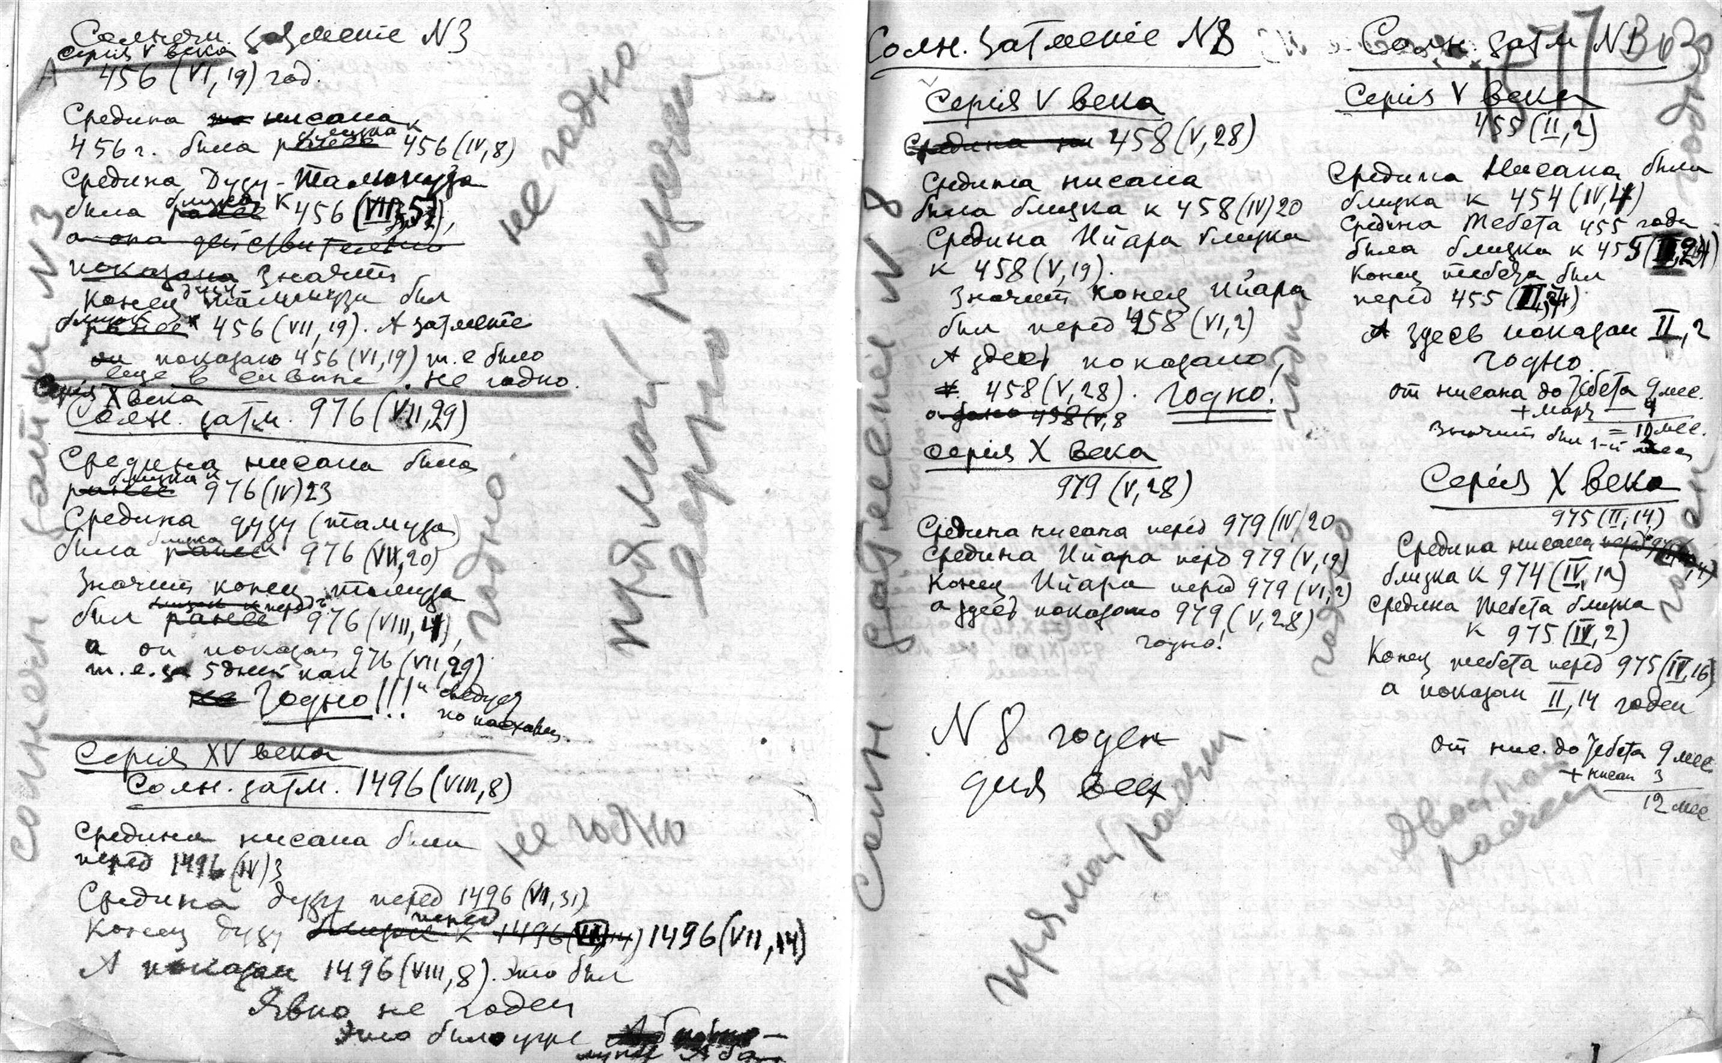 Солнечн. затменіе N3
Серія V века
456 (VI, 19) год.
Средина нисана
456 г. была близка к 456 (IV, 8)
Средина Дузу-Таммуза
была близка к 456 (VII, 5),
а она действительно
показана Значит
Конец дузу таммуза был
ранее 456 (VII, 19). А затменіе
показано 456 (VI, 19) т.е было
еще в сивине. не годно.
Серія X века
Солн. затм. 976 (VII, 29)
Средина нисана была
близка к 976 (IV) 23
Средина дузу (тамуза)
была близка к 976 (VII, 20)
Значит конец тамуза
был перед 976 (VIII, 4),
а он показан 976 (VII, 29)
т.е. за 5 дней как
не Годно!!! следует
по пасхалии.
Серія XV века
Солн. затм. 1496 (VIII, 8)
Средина нисана была
перед 1496 (IV) 3
Средина дузу перед 1496 (VI, 31)
Конец дузу перед 1496 (VII, 14)
А показан 1496 (VIII, 8). это был
Явно не годен
Это было уже
солнечн. затм N3
не годно
прямой расчет
верно
годно.
не годно
Солн. затменіе N8
Серія V века
Средина 458 (V, 28)
Средина нисана
была близка к 458 (IV) 20
Средина Ийара близка
к 458 (V, 19).
Значит конец Ийара
был перед 458 (VI, 2)
А здесь показано,
458 (V, 28). Годно!
458 (V, 8
Серія X века
979 (V, 28)
Средина нисана перед 979 (IV, 20
Средина Ийара перед 979 (V, 19)
Конец Ийара перед 979 (VI, 2)
а здесь показано 979 (V, 28)
годно!
N 8 годен
для всех
Солн затменіе N 8
годно
годно
прямой расчет
Солн. затм N
Серія V века
455 (II, 2)
Средина Нисана была
близка к 454 (IV, 4)
Средина Тебета 455 года
была близка к 455
Конец тебета был
перед 455
А здесь показан II, 2
годно.
от нисана до Тебета 9 мес.
+ март
Значит был 1-й мес
Серія X века
975 (II, 14)
Средина нисана
близка к 974 (IV, 12)
Средина Тебета близка
к 975 (IV, 2)
Конец тебета перед 975 (IV, 16)
а показан II, 14 годен
от нис. до Тебета 9 мес
+ нисан 3
12 мес
Двойной
расчет
годен